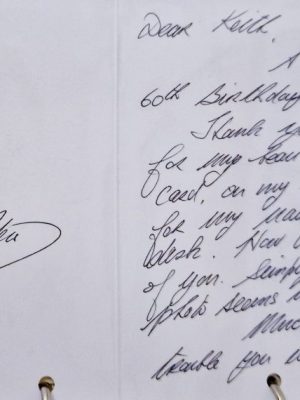 Dear Keith,
A
60th Birthday
Thank y
for my beau
card, on my
for my
desk. How
of you. Simp
photo seems
Muc
trouble you